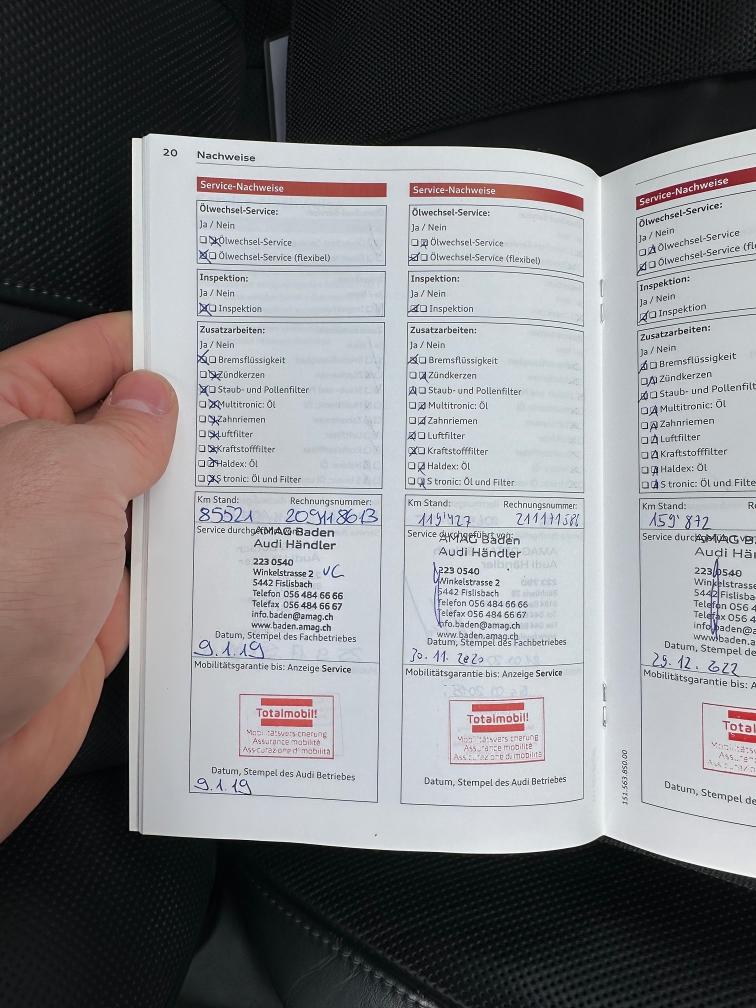 20 Nachweise
Service-Nachweise
Ölwechsel-Service:
Ja / Nein
Ölwechsel-Service
Ölwechsel-Service (flexibel)
Inspektion:
Ja / Nein
Inspektion
Zusatzarbeiten:
Ja / Nein
Bremsflüssigkeit
Zündkerzen
Staub- und Pollenfilter
Multitronic: Öl
Zahnriemen
Luftfilter
Kraftstofffilter
Haldex: Öl
S tronic: Öl und Filter
Km Stand: Rechnungsnummer:
85521 209118613
Service durchgeführt von:
AMAG Baden
Audi Händler
223 0540
Winkelstrasse 2
5442 Fislisbach
Telefon 056 484 66 66
Telefax 056 484 66 67
info.baden@amag.ch
www.baden.amag.ch
Datum, Stempel des Fachbetriebes
9.1.19
Mobilitätsgarantie bis: Anzeige Service
Totalmobil!
Mobilitätsversicherung
Assurance mobilité
Assicurazione di mobilità
Datum, Stempel des Audi Betriebes
9.1.19
Service-Nachweise
Ölwechsel-Service:
Ja / Nein
Ölwechsel-Service
Ölwechsel-Service (flexibel)
Inspektion:
Ja / Nein
Inspektion
Zusatzarbeiten:
Ja / Nein
Bremsflüssigkeit
Zündkerzen
Staub- und Pollenfilter
Multitronic: Öl
Zahnriemen
Luftfilter
Kraftstofffilter
Haldex: Öl
S tronic: Öl und Filter
Km Stand: Rechnungsnummer:
119'427
Service durchgeführt von:
AMAG Baden
Audi Händler
223 0540
Winkelstrasse 2
5442 Fislisbach
Telefon 056 484 66 66
Telefax 056 484 66 67
info.baden@amag.ch
www.baden.amag.ch
Datum, Stempel des Fachbetriebes
30.11.2020
Mobilitätsgarantie bis: Anzeige Service
Totalmobil!
Mobilitätsversicherung
Assurance mobilité
Assicurazione di mobilità
Datum, Stempel des Audi Betriebes
151.563.850.00
Service-Nachweise
Ölwechsel-Service:
Ja / Nein
Ölwechsel-Service
Ölwechsel-Service (fle
Inspektion:
Ja / Nein
Inspektion
Zusatzarbeiten:
Ja / Nein
Bremsflüssigkeit
Zündkerzen
Staub- und Pollenfilt
Multitronic: Öl
Zahnriemen
Luftfilter
Kraftstofffilter
Haldex: Öl
S tronic: Öl und Filte
Km Stand:
159'872
Service durchgeführt
AMAG B
Audi Hä
223 0540
Winkelstrasse
5442 Fislisba
Telefon 056 4
Telefax 056 4
info.baden@a
www.baden.a
Datum, Stempel de
29.12.2022
Mobilitätsgarantie bis: An
Total
Datum, Stempel de